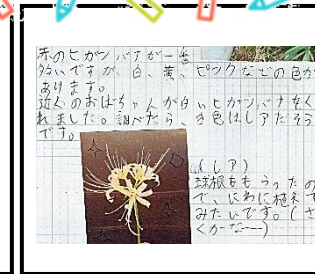 赤のヒガンバナが一番
多いですが、白、黄、ピンクなどの色が
あります。
近くのおばちゃんが白いヒガンバナをく
れました。調べたら、白色はレアだそう
です。
(レア)
球根ももらったの
で、にわに植えて
みたいです。(さ
くかなー)